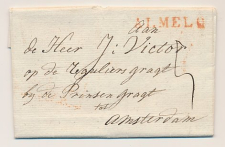 ALMELO
Aan
de Heer J: Victor
op de Reguliersgragt
bij de Prinsengragt
tot
Amsterdam